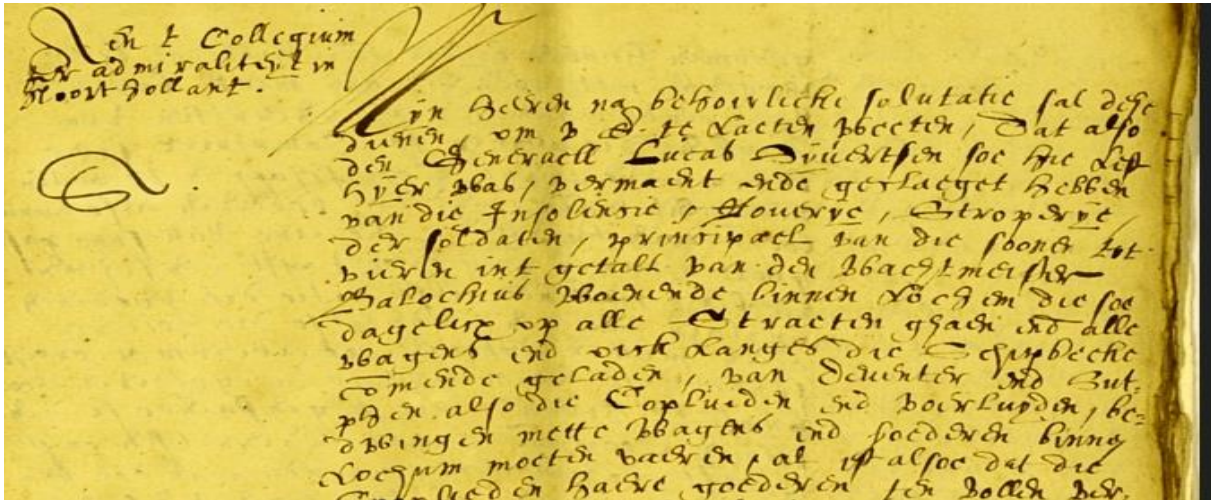 Aen t Collegium
ter admiraliteyt in
Noort Hollant.
Myn Heeren na behoirlicke salutatie sal dese
dienen, om v E. te laeten weeten, Dat also
den Generaell Lucas Syuertsen soe hie lest
hyer was, vermaent ende geclaeget hebben
van die Insolensie, Rouerye, Stroperye,
der soldaten, principael van die soonen tot
vieren int getall van den Wachtmeister
Balochius woenende binnen Lochem die soe
dagelicx op alle Straeten ghaen end alle
wagens end oick langes die Schipbecke
comende geladen, van Deuenter end Sut-
phen also die Copluiden end voerluyden, be-
dwingen mette wagens end goederen binnen
Lochum moeten vaeren, al ist alsoe dat die
Coplueden haere goederen ten vollen ver